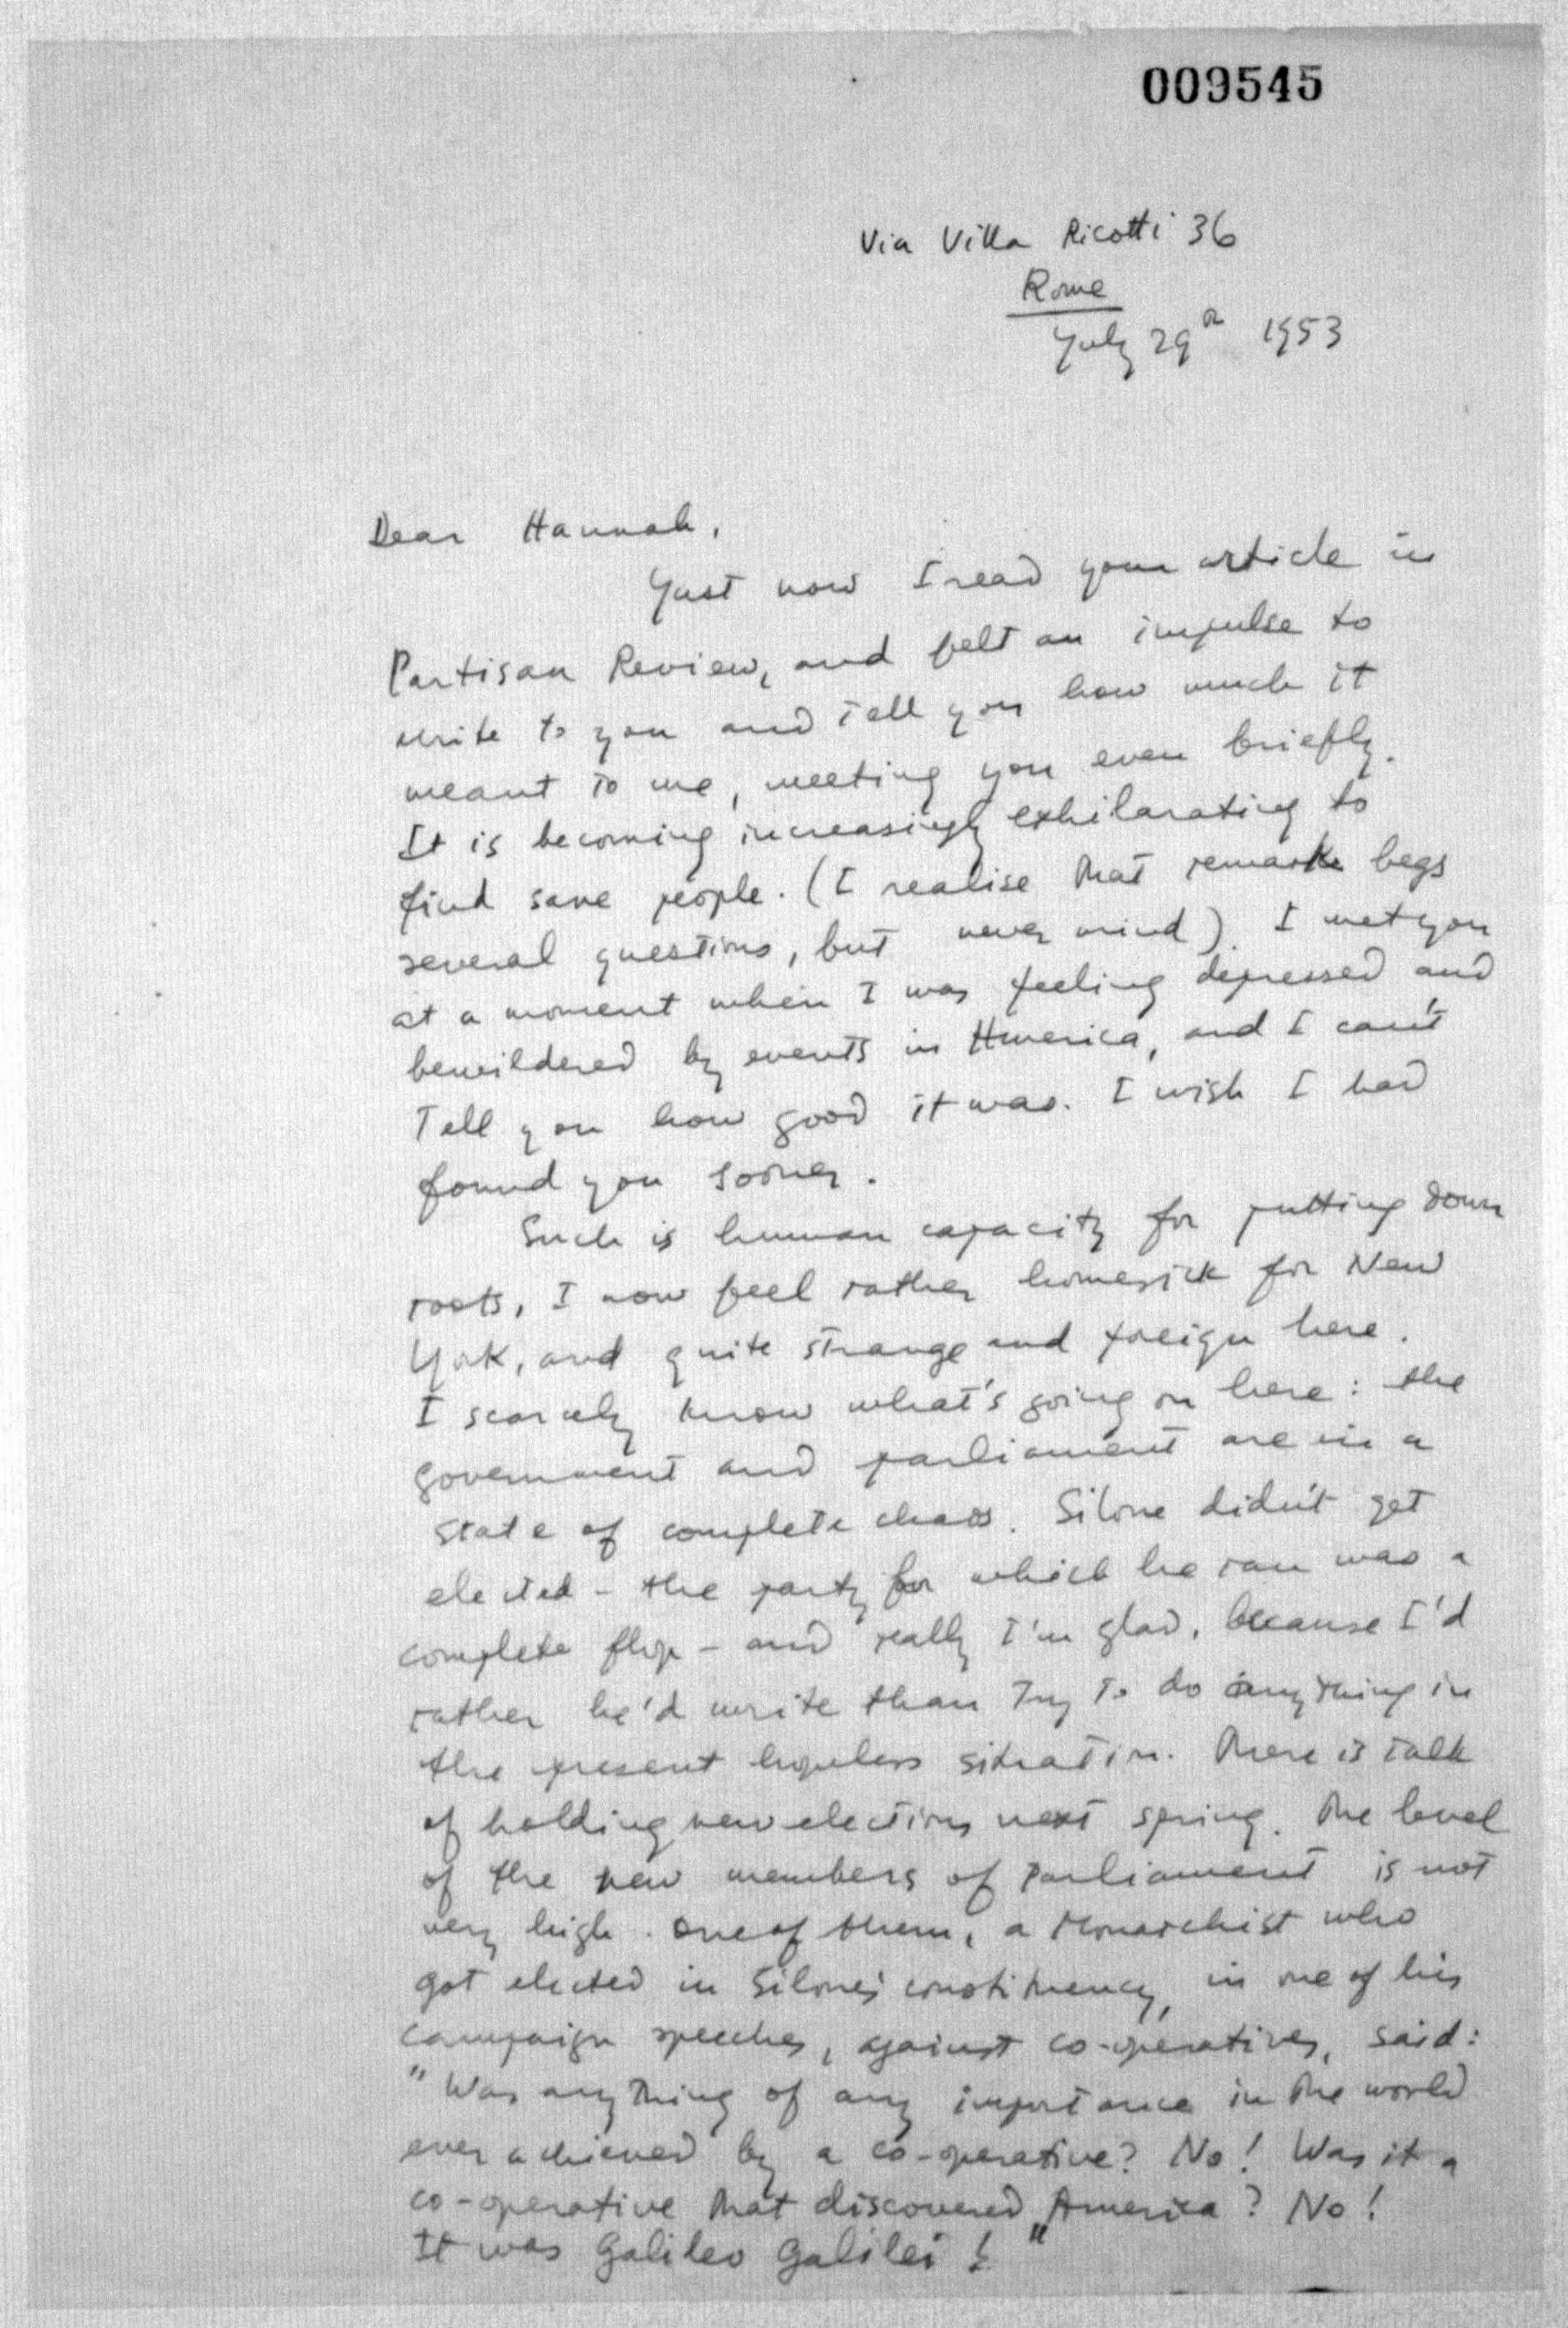 009545
Via Villa Ricotti 36
Rome
July 29th 1953
Dear Hannah,
Just now I read your article in
Partisan Review, and felt an impulse to
write to you and tell you how much it
meant to me, meeting you even briefly.
It is becoming increasingly exhilarating to
find sane people. (I realise that remark begs
several questions, but never mind). I met you
at a moment when I was feeling depressed and
bewildered by events in America, and I can't
tell you how good it was. I wish I had
found you sooner.
Such is human capacity for putting down
roots, I now feel rather homesick for New
York, and quite strange and foreign here.
I scarcely know what's going on here: the
government and parliament are in a
state of complete chaos. Silone didn't get
elected - the party for which he ran was a
complete flop - and really I'm glad, because I'd
rather he'd write than try to do anything in
the present hopeless situation. There is talk
of holding new elections next spring. The level
of the new members of Parliament is not
very high. One of them, a Monarchist who
got elected in Silone's constituency, in one of his
campaign speeches, against co-operatives, said:
"Was anything of any importance in the world
ever achieved by a co-operative? No! Was it a
co-operative that discovered America? No!
It was Galileo Galilei!"